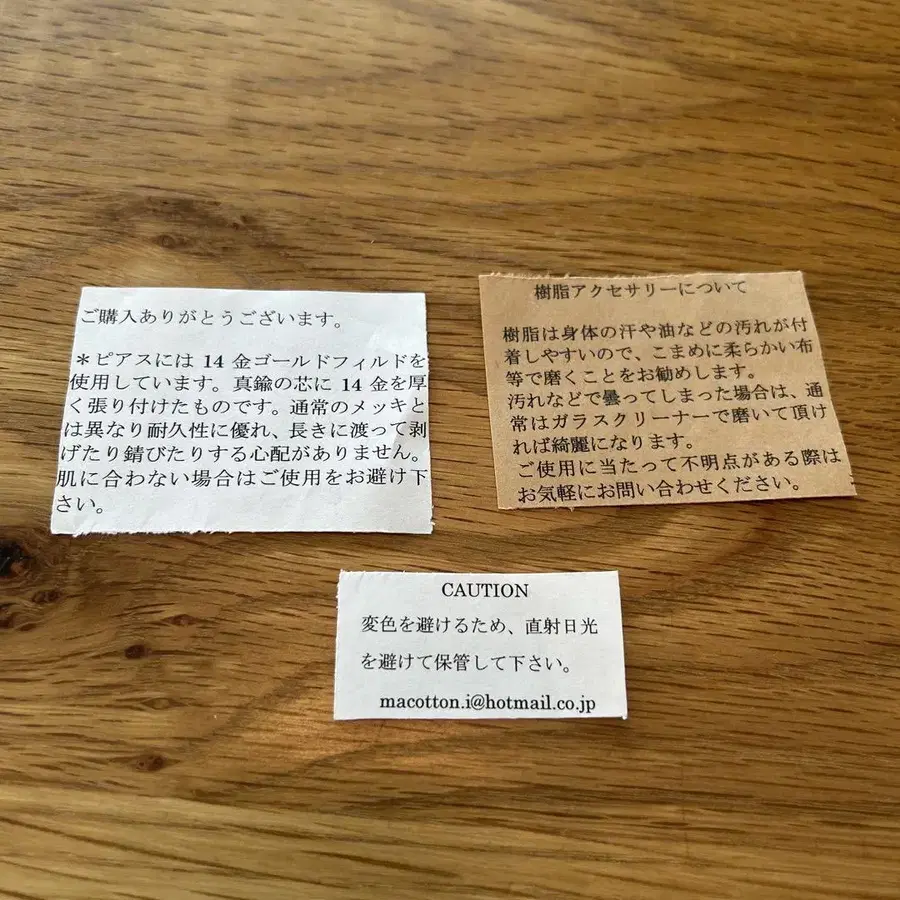 ご購入ありがとうございます。
＊ピアスには 14 金ゴールドフィルドを
使用しています。真鍮の芯に 14 金を厚
く張り付けたものです。通常のメッキと
は異なり耐久性に優れ、長きに渡って剥
げたり錆びたりする心配がありません。
肌に合わない場合はご使用をお避け下
さい。
樹脂アクセサリーについて
樹脂は身体の汗や油などの汚れが付
着しやすいので、こまめに柔らかい布
等で磨くことをお勧めします。
汚れなどで曇ってしまった場合は、通
常はガラスクリーナーで磨いて頂け
れば綺麗になります。
ご使用に当たって不明点がある際は
お気軽にお問い合わせください。
CAUTION
変色を避けるため、直射日光
を避けて保管して下さい。
macotton.i@hotmail.co.jp